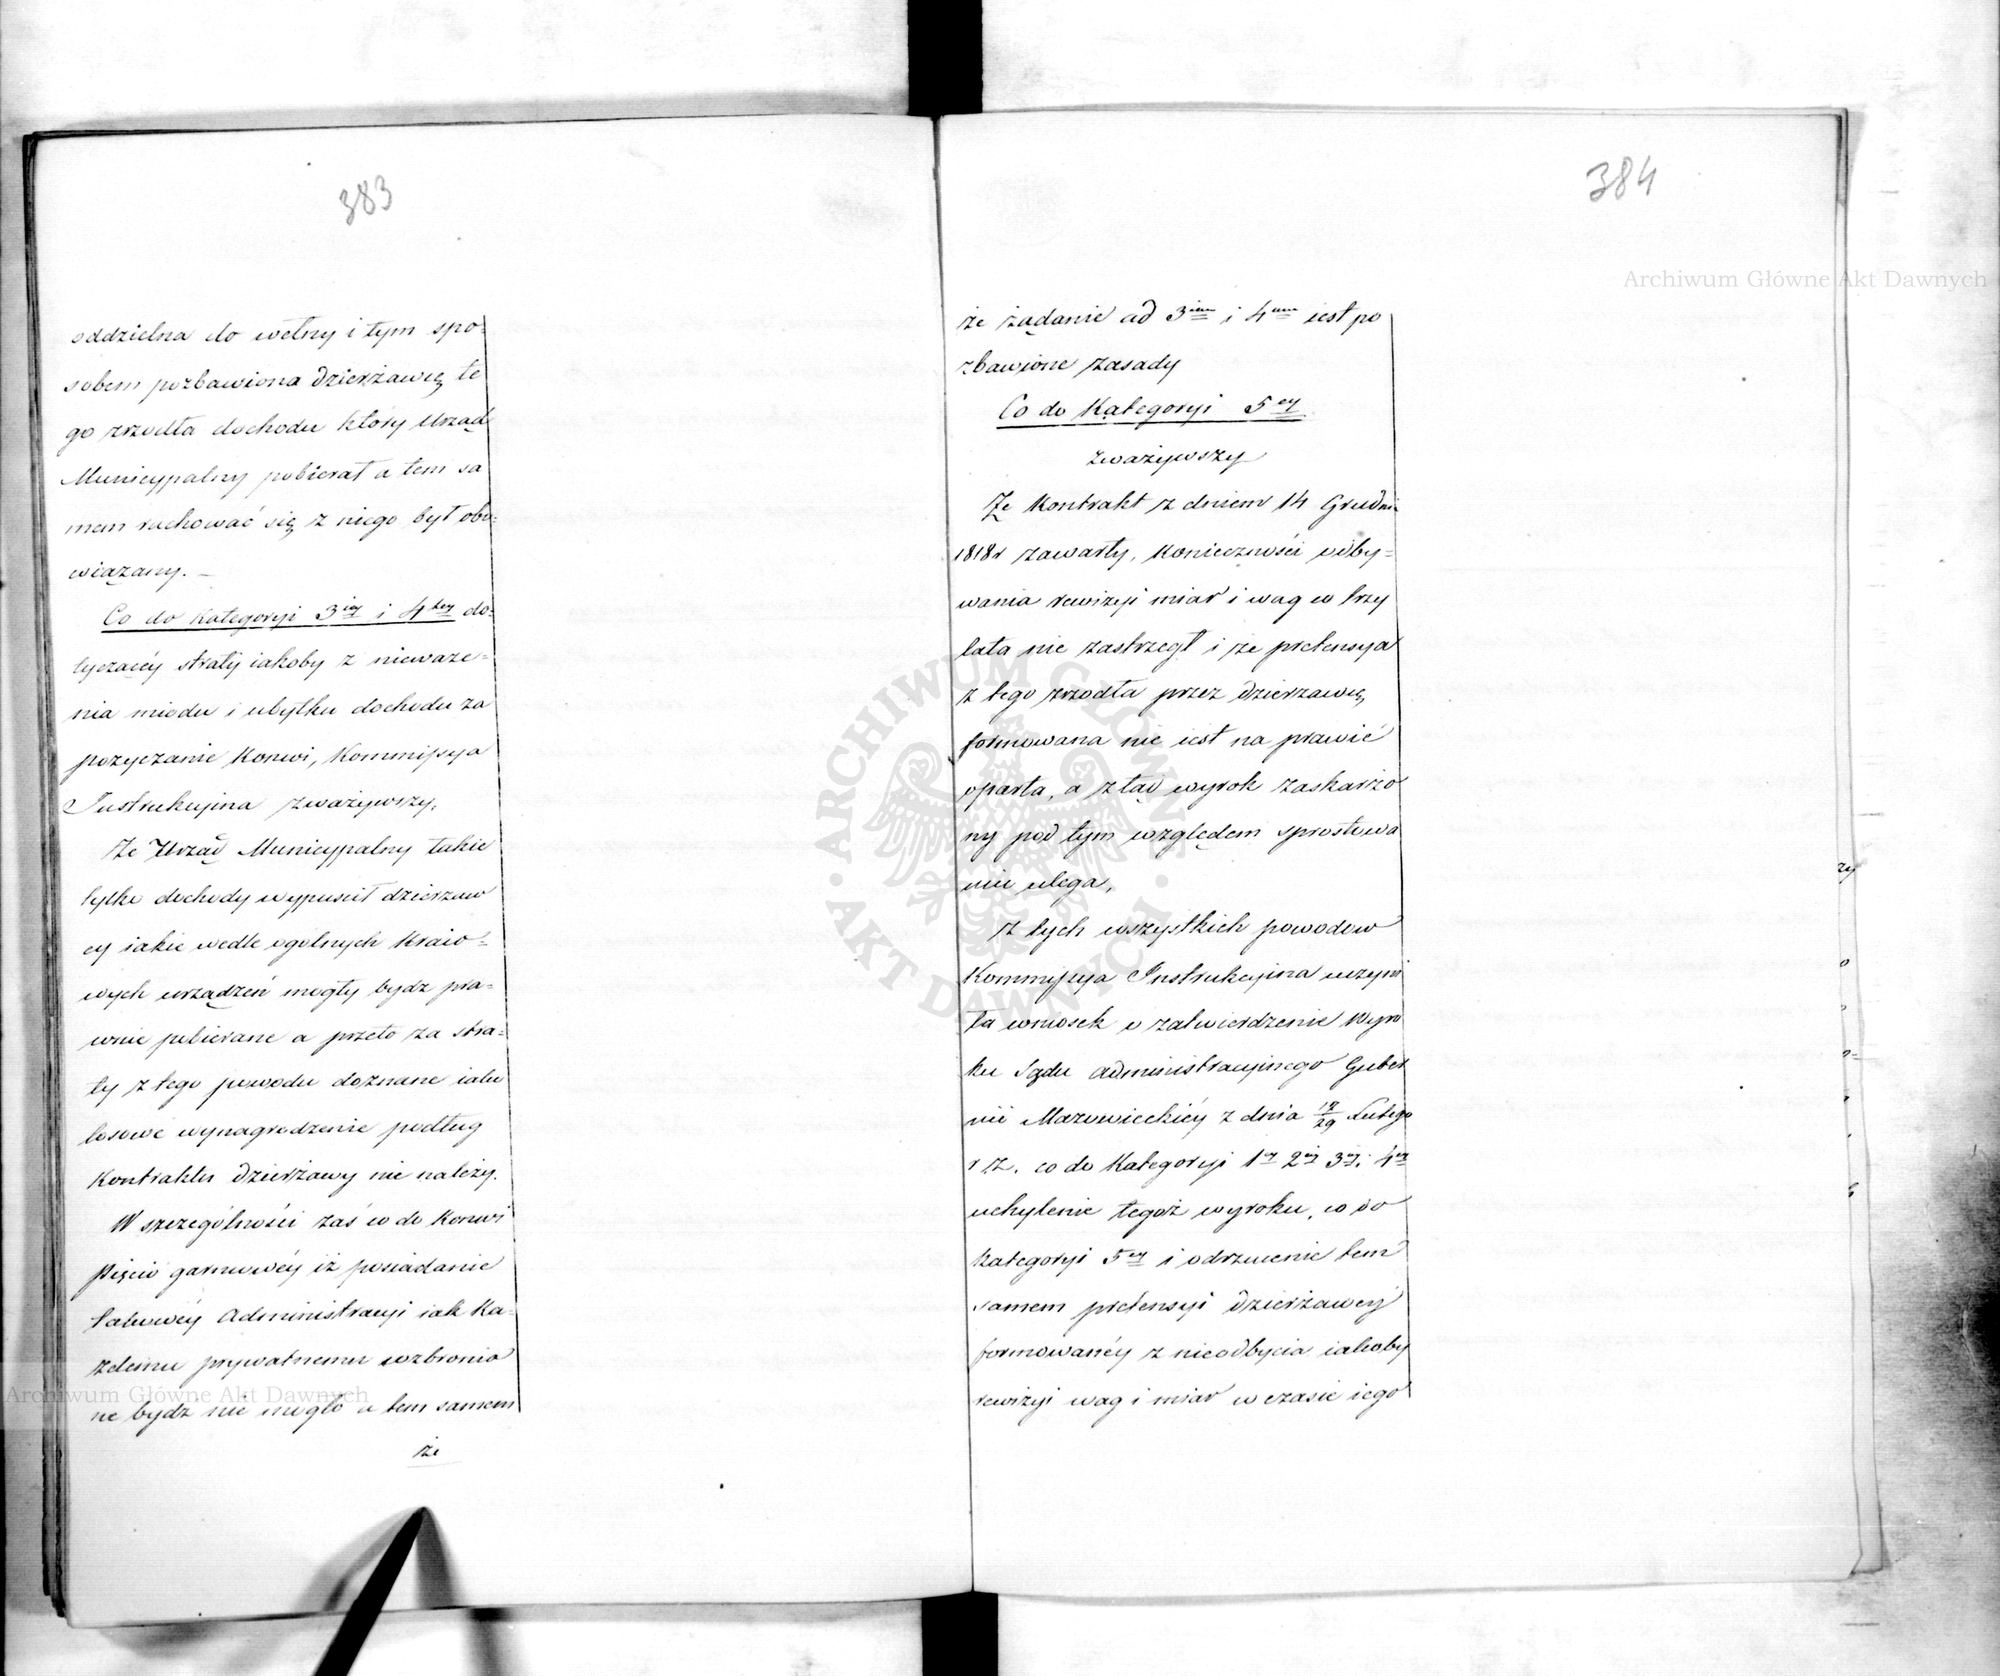 383
oddzielna do wełny i tym spo=
sobem pozbawiona dzierżawcę te
go zrzodła dochodu który Urząd
Municypalny pobierał a tem sa
mem rachować się z niego był obo=
wiązany. —
Co do kategoryi 3iey i 4tey do=
tyczącéy straty iakoby z nieważe=
nia miodu i ubytku dochodu za
pożyczanie Konwi, Kommissya
Instrukcyjna zważywszy,
Że Urząd Municypalny takie
tylko dochody wypuścił dzierżaw
cy iakie wedle ogólnych Kraio=
wych urządzeń mogły bydz pra=
wnie pobierane a przeto za stra=
ty z tego powodu doznane iako
losowe wynagrodzenie podług
Kontraktu dzierżawy nie należy.
W szczególności zaś co do Konwi
Pięcio garncowéy iż posiadanie
takowéy Administracyi iak Ka=
żdemu prywatnemu wzbronio
ne bydz nie mogło a tem samem
że
384
że żądanie ad 3ium i 4um iest po
zbawione zasady
Co do Kategoryi 5ey
zważywszy
Że Kontrakt z dniem 14 Grudni
1818r zawarty, Konieczności odby=
wania rewizyi miar i wag co trzy
lata nie zastrzegł i że pretensya
z tego zrzodła przez dzierzawcę
formowana nie iest na prawie
oparta, a ztąd wyrok zaskarżo
ny pod tym względem sprostowa
niu ulega,
Z tych wszystkich powodow
Kommissya Instrukcyjna uczyni
ła wniosek o zatwierdzenie Wyro
ku Sądu Administracyjnego Guber
nii Mazowieckiéy z dnia 17/29 Lutego
r z. co do Kategoryi 1ey 2ey 3ey i 4ey
uchylenie tegoż wyroku, co do
Kategoryi 5ey i odrzucenie tem
samem pretensyi dzierżawcy
formowanéy z nieodbycia iakoby
rewizyi wag i miar w czasie iego
zy
Archiwum Główne Akt Dawnych
ARCHIWUM GŁÓWNE · AKT DAWNYCH ·
Archiwum Główne Akt Dawnych